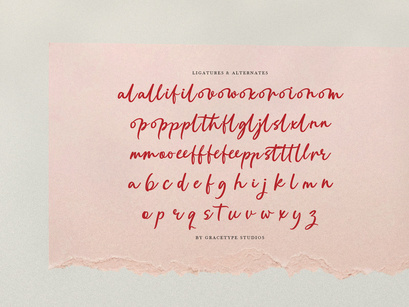 LIGATURES & ALTERNATES
alallifilovowoxoroionom
opoppplthflgljlslxlnn
mmooeefffefeeppsttttllrr
a b c d e f g h i j k l m n
o p r q s t u v w x y z
BY GRACETYPE STUDIOS